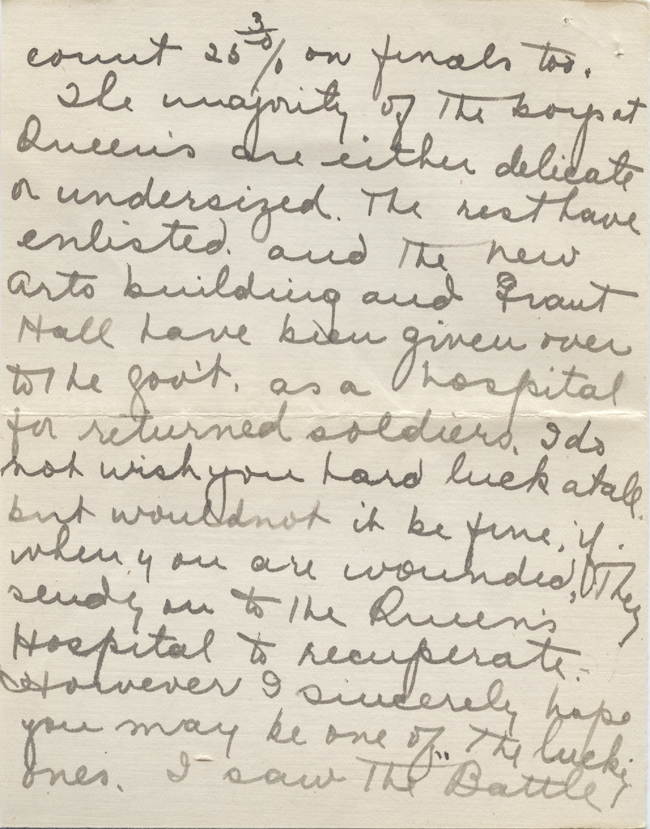 count 25 % on finals too.
The majority of the boys at
Queen's are either delicate
or undersized. The rest have
enlisted. and the new
Arts building and Grant
Hall have been given over
to the gov't. as a hospital
for returned soldiers. I do
not wish you hard luck at all.
but would not it be fine, if.
when you are wounded, they
send you to the Queen's
Hospital to recuperate.
However I sincerely hope
you may be one of the lucky
ones. I saw "The Battle